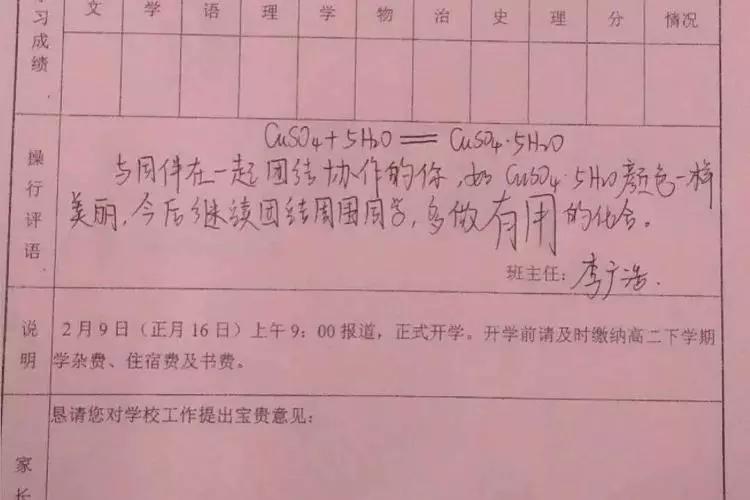 习成绩
文 学 语 理 学 物 治 史 理 分 情况
操行评语
CuSO₄+5H₂O══CuSO₄·5H₂O
与同伴在一起团结协作的你,如CuSO₄·5H₂O颜色一样
美丽,今后继续团结周围同学,多做有用的化合。
班主任:李广浩.
说明
2月9日(正月16日)上午9:00报道,正式开学。开学前请及时缴纳高二下学期
学杂费、住宿费及书费。
恳请您对学校工作提出宝贵意见:
家长